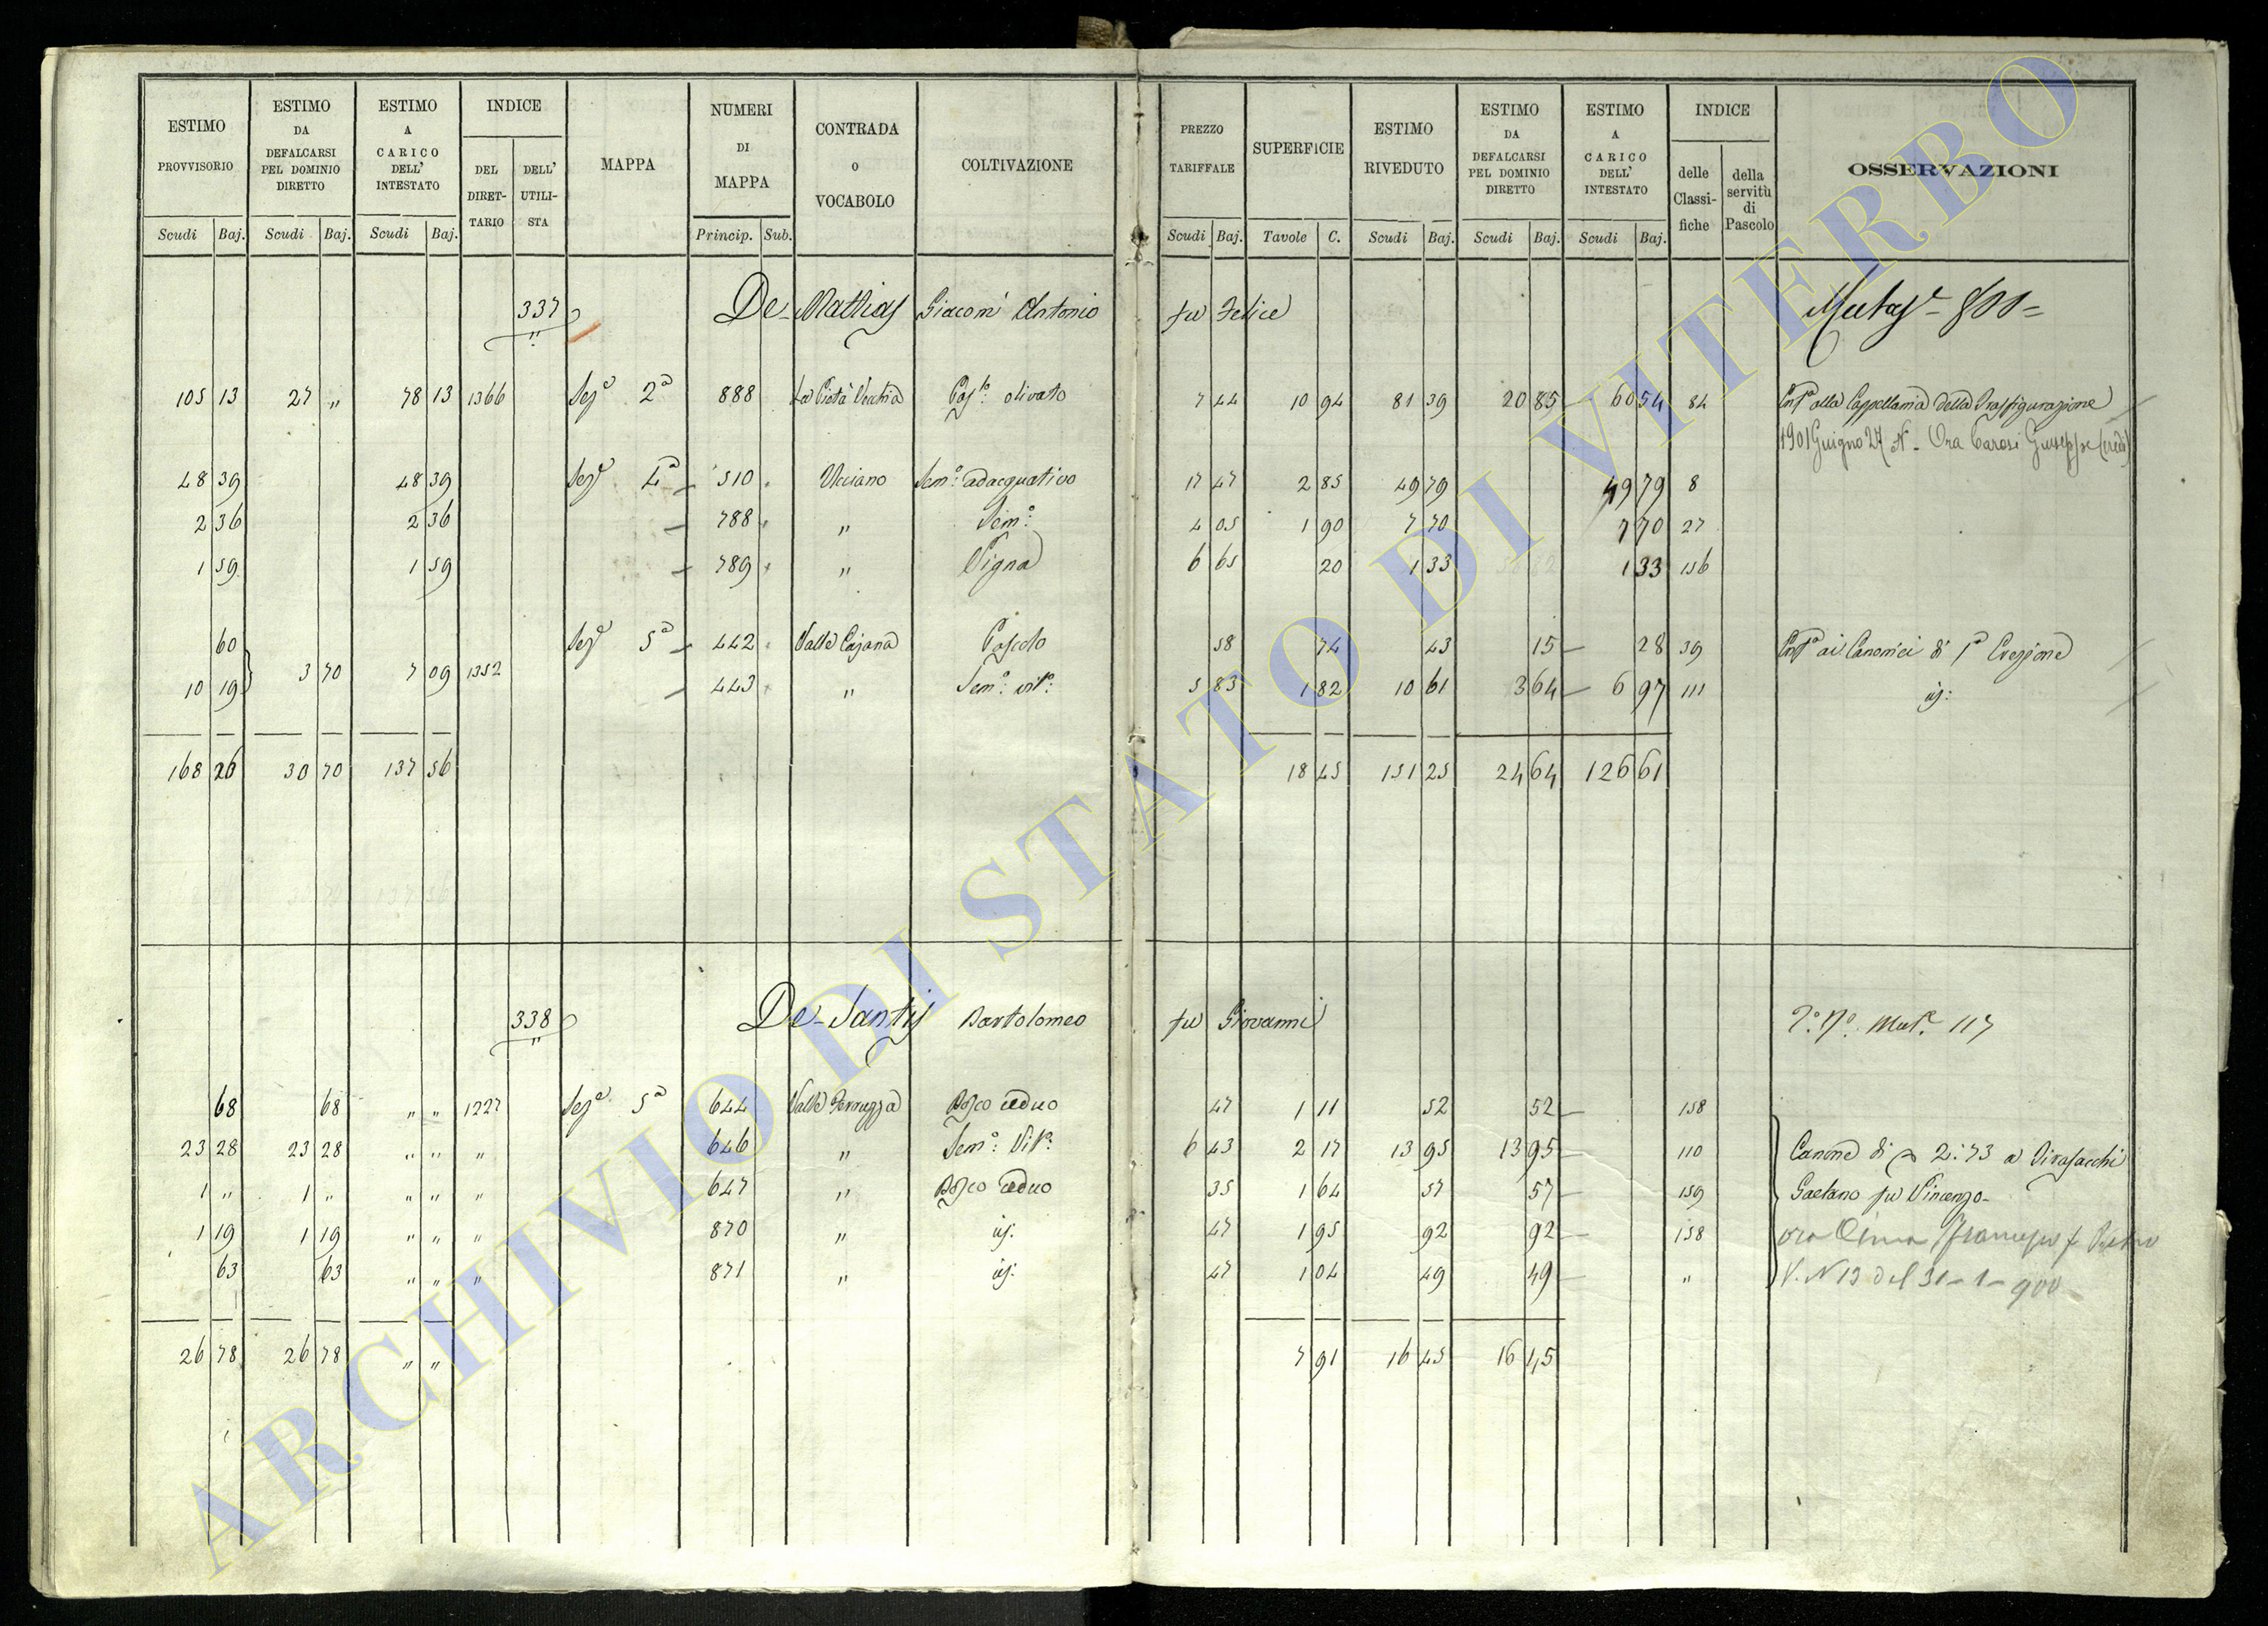 ESTIMO PROVVISORIO
ESTIMO DA DEFALCARSI PEL DOMINIO DIRETTO
ESTIMO A CARICO DELL' INTESTATO
INDICE
DEL DIRET-TARIO
DELL' UTILI-STA
MAPPA
NUMERI DI MAPPA
CONTRADA O VOCABOLO
COLTIVAZIONE
PREZZO TARIFFALE
SUPERFICIE
ESTIMO RIVEDUTO
ESTIMO DA DEFALCARSI PEL DOMINIO DIRETTO
ESTIMO A CARICO DELL' INTESTATO
INDICE
delle Classi-fiche
della servitù di Pascolo
OSSERVAZIONI
Scudi Baj. Scudi Baj. Scudi Baj. Princip. Sub. Scudi Baj. Tavole C. Scudi Baj. Scudi Baj. Scudi Baj.
337 De-Mathias Giacom' Antonio fu Felice
105 13 27 „ 78 13 1366 Sezе 2a 888 La Pietà Vecchia Pas: olivato 7 44 10 94 81 39 20 85 60 54 84 alla Cappellania della Trasfigurazione
1901 Giugno 27 N - Ora Carosi Giuseppe (eredi)
48 39 48 39 Seze 4a 510 Ucciano Semo adacquativo 17 47 2 85 49 79 49 79 8
2 36 2 36 788 „ Semo: 4 05 1 90 7 70 7 70 27
1 59 1 59 789 „ Vigna 6 65 20 1 33 1 33 156
60 Seze 5a 442 Valle Cajana Pascolo 58 74 43 15 28 39 ai Canonici di Ia Erezione
3 70 7 09 1352
10 19 443 „ Semo: vito: 5 83 1 82 10 61 3 64 6 97 111
168 26 30 70 137 56 18 45 151 25 24 64 126 61
338 De-Santis Bartolomeo fu Giovanni 117
68 68 „ „ 1227 Seze 5a 644 Valle Bosco ceduo 47 1 11 52 52 158
23 28 23 28 „ „ „ 646 „ Semo: Vito: 6 43 2 17 13 95 13 95 110 Canone di 2:73 a
1 „ 1 „ „ „ „ 647 „ Bosco ceduo 35 1 64 57 57 159 Gaetano fu Vincenzo-
1 19 1 19 „ „ „ 870 „ 47 1 95 92 92 158 ora
63 63 „ „ „ 871 „ 47 1 04 49 49 „ V. N 13 del 31-1-900
26 78 26 78 „ „ 7 91 16 45 16 45
ARCHIVIO DI STATO DI VITERBO